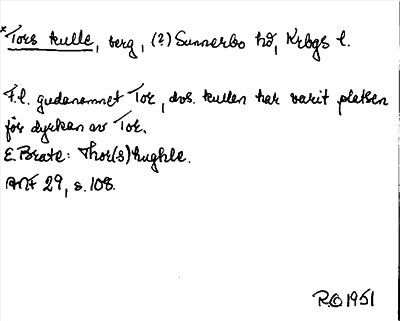 *Tors kulle, berg, (?) Sunnerbo hd, Krbgs l.
F.l. gudanamnet Tor, dvs. kullen har varit platsen
för dyrkan av Tor.
E. Brate: Thor(s)hughle.
ANF 29, s. 108.
R.O 1951